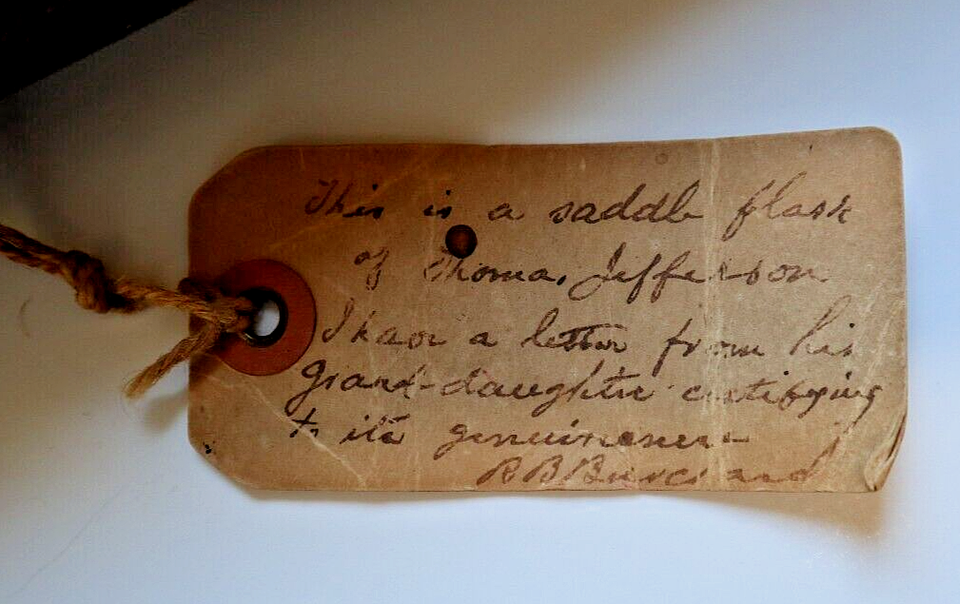 This is a saddle flask
of Thomas Jefferson
I have a letter from his
grand-daughter certifying
to its genuineness
R B